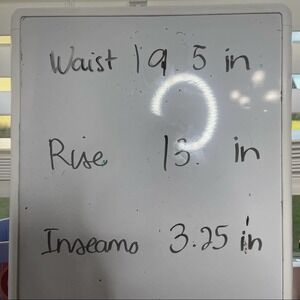 Waist 19.5 in
Rise 13. in
Inseams 3.25 in